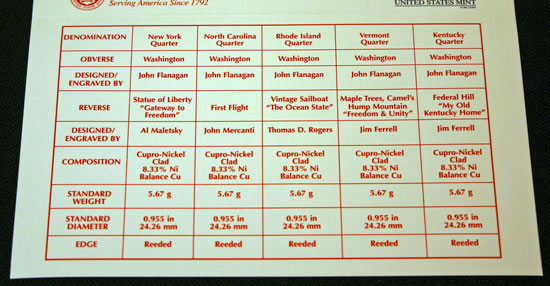 Serving America Since 1792
UNITED STATES MINT
DENOMINATION New York Quarter North Carolina Quarter Rhode Island Quarter Vermont Quarter Kentucky Quarter
OBVERSE Washington Washington Washington Washington Washington
DESIGNED/ENGRAVED BY John Flanagan John Flanagan John Flanagan John Flanagan John Flanagan
REVERSE Statue of Liberty "Gateway to Freedom" First Flight Vintage Sailboat "The Ocean State" Maple Trees, Camel's Hump Mountain "Freedom & Unity" Federal Hill "My Old Kentucky Home"
DESIGNED/ENGRAVED BY Al Maletsky John Mercanti Thomas D. Rogers Jim Ferrell Jim Ferrell
COMPOSITION Cupro-Nickel Clad 8.33% Ni Balance Cu Cupro-Nickel Clad 8.33% Ni Balance Cu Cupro-Nickel Clad 8.33% Ni Balance Cu Cupro-Nickel Clad 8.33% Ni Balance Cu Cupro-Nickel Clad 8.33% Ni Balance Cu
STANDARD WEIGHT 5.67 g 5.67 g 5.67 g 5.67 g 5.67 g
STANDARD DIAMETER 0.955 in 24.26 mm 0.955 in 24.26 mm 0.955 in 24.26 mm 0.955 in 24.26 mm 0.955 in 24.26 mm
EDGE Reeded Reeded Reeded Reeded Reeded